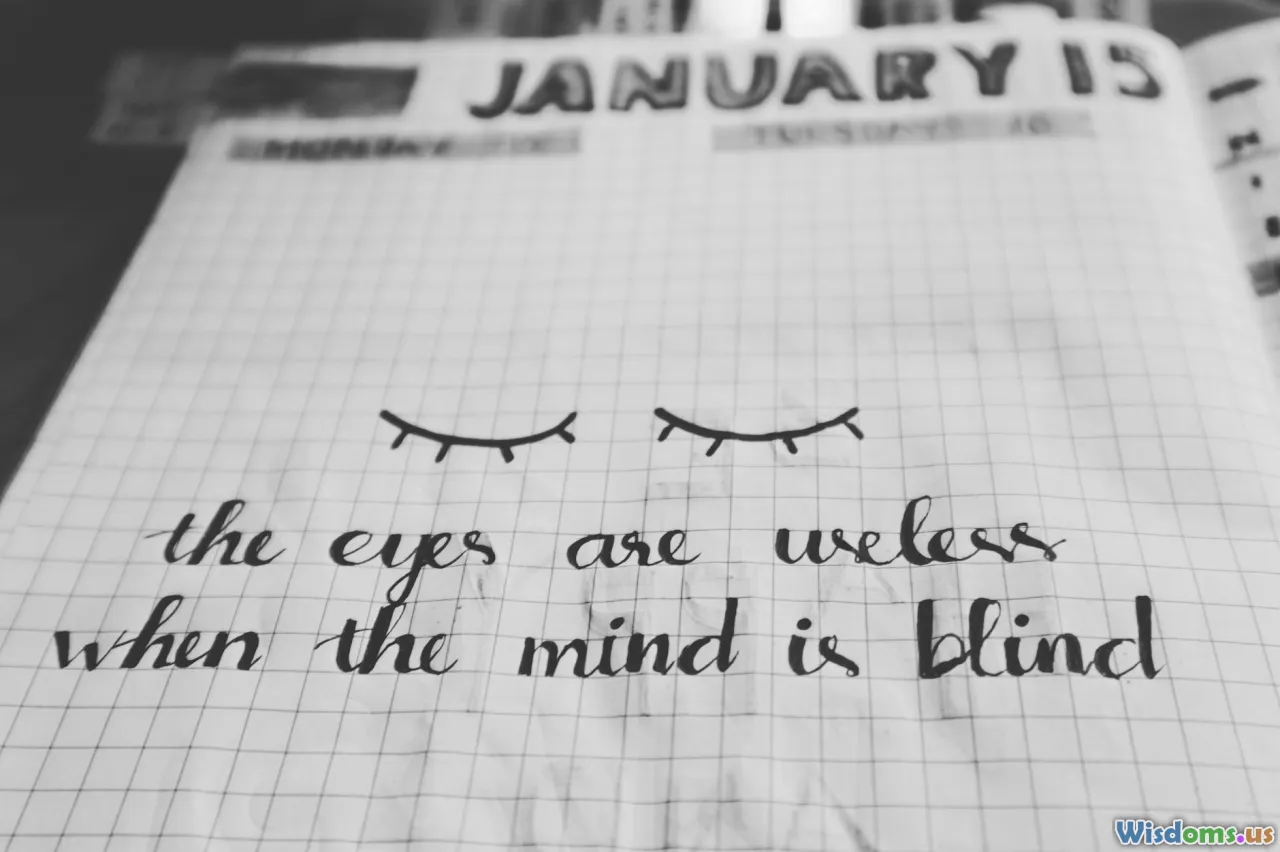 JANUARY 15
MONDAY
TUESDAY 16
the eyes are useless
when the mind is blind
Wisdoms.us